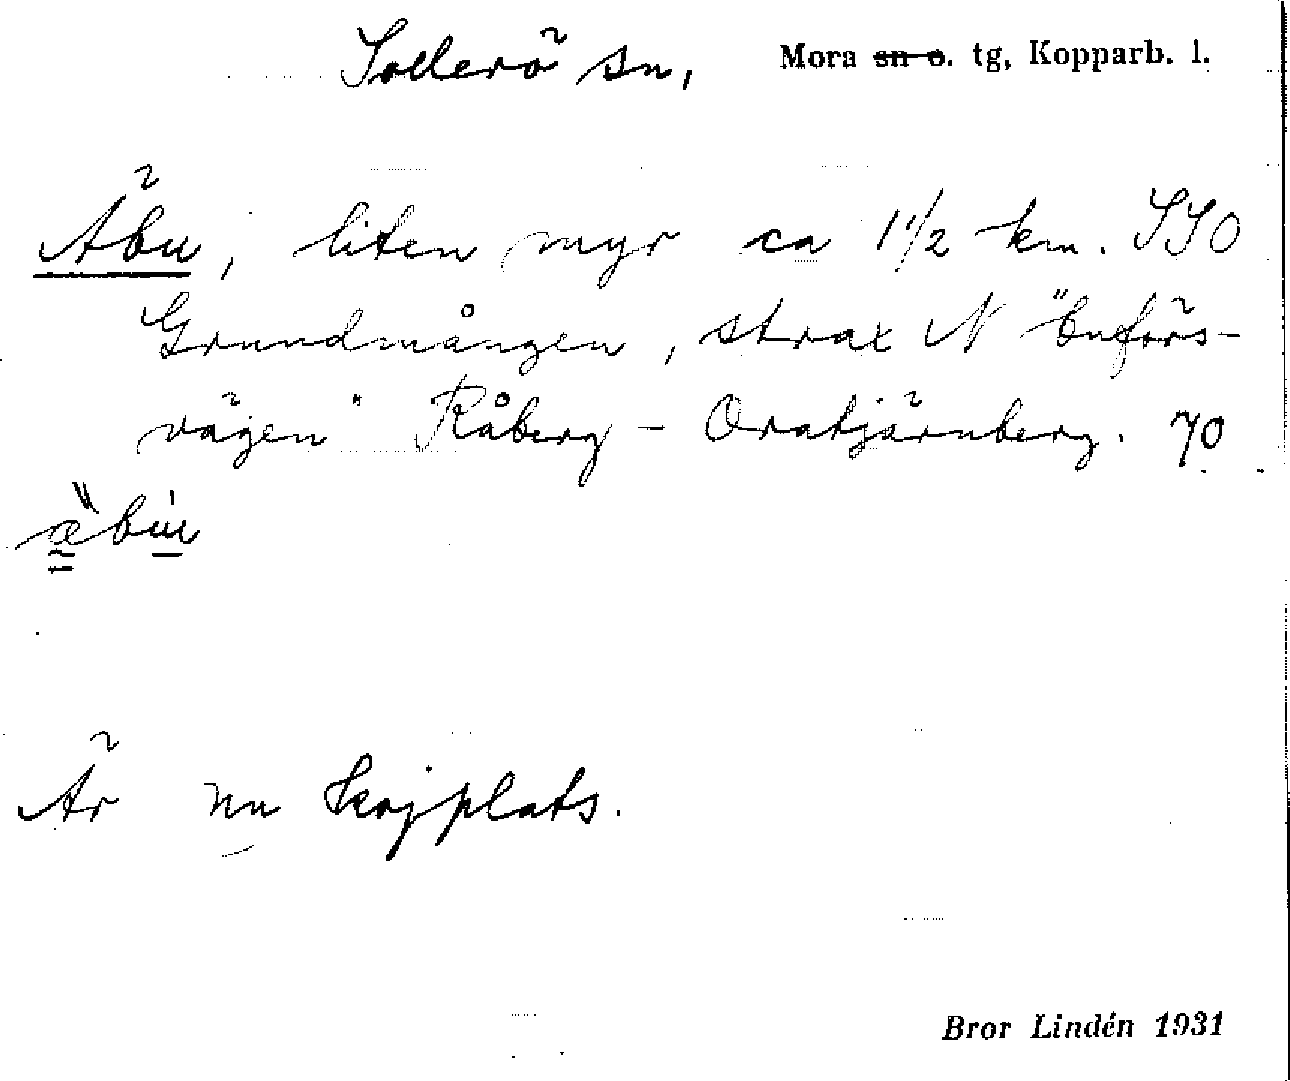 Sollerö sn, Mora sn o. tg, Kopparb. l.
Äbu, liten myr ca 1 1/2 km. SSO
Grundmången, strax N "buförs-
vägen" Råberg - Oratjärnberg. 70
Är nu kojplats.
Bror Lindén 1931